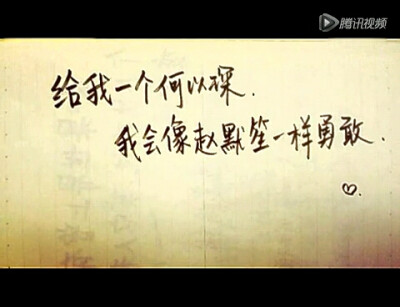 腾讯视频
给我一个何以琛.
我会像赵默笙一样勇敢.